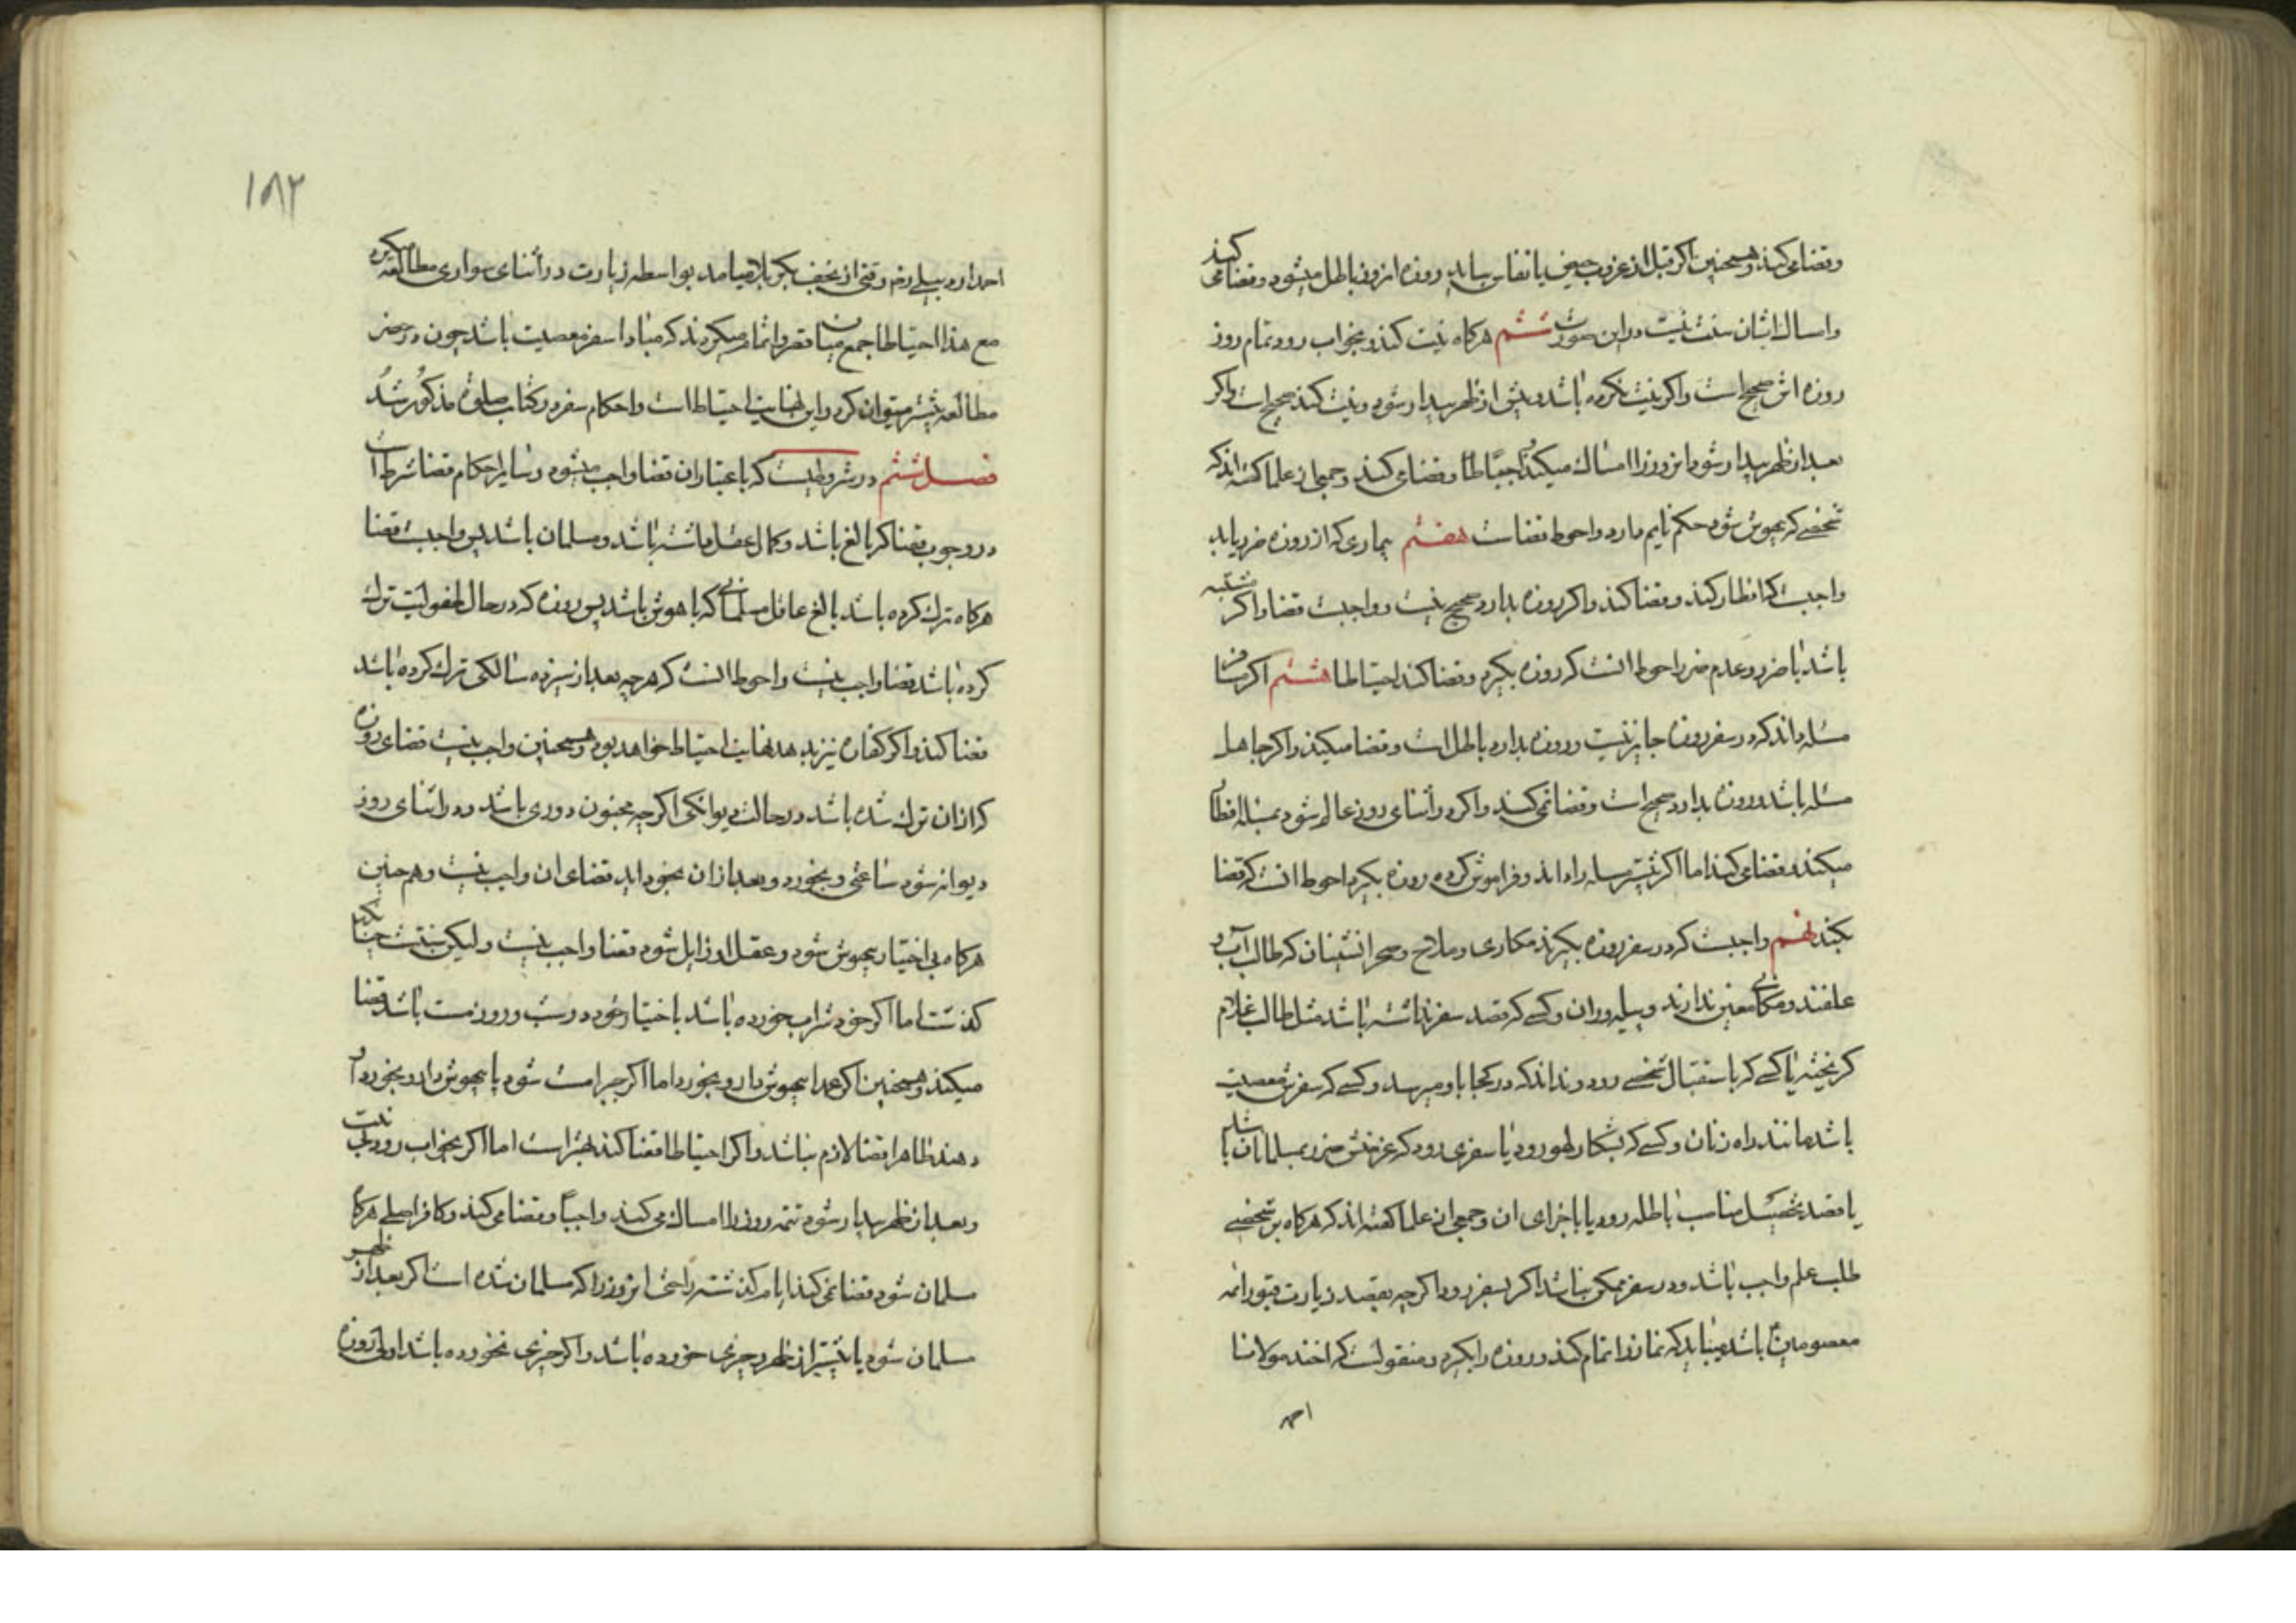 وقضا می‌کند و همچنین اکر قبل از غروب حیض یا نفاس بیاید روزه آنروز باطل میشود و قضا می کند
و امساک ایشان سنت نیست در این صورت ششم هرکاه نیت کند و بخواب رود تمام روز
روزه اش صحیح است و اکر نیت نکرده باشد و پیش از ظهر بیدار شود و نیت کند صحیح است و اکر
بعد از ظهر بیدار شود انروز را امساک میکند احتیاطا و قضا می کند و جمعی از علما کفته اند که
شخصی که بیهوش شود حکم نایم دارد و احوط قضاست هفتم بیماری که از روزه ضرر یابد
واجبست که افطار کند و قضا کند و اکر روزه بدارد صحیح نیست و واجبست قضا و اکر مشتبه
باشد با ضرر و عدم ضرر احوط انست که روزه بکیرد و قضا کند احتیاطا هشتم اکر مسافر
مسله داند که در سفر روزه جایز نیست و روزه بدارد باطل است و قضا میکند و اکر جاهل
مسله باشد و روزه بدارد صحیح است و قضا نمی کند و اکر در اثنای روز عالم شود بمسله افطار
میکند و قضا می کند اما اکر پیشتر مسله را داند و فراموش کرده روزه بکیرد احوط انست که قضا
بکند نهم واجبست که در سفر روزه بکیرند مکاری و ملاح و صحرا نشینان که طالب آب و
علفند و مکانی معین ندارند و پیله وران و کسی که قصد سفر نداشته باشد مثل طالب غلام
کریخته یا کسی که باستقبال شخصی رود و نداند که در کجا باو میرسد و کسی که سفرش معصیت
باشد مانند راه زنان و کسی که بشکار لهو رود یا سفری رود که غرضش ضرر بمسلمانان باشد
یا قصد تحصیل مناصب باطله رود یا با جزای ان و جمعی از علما کفته اند که هرکاه بر شخصی
طلب علم واجب باشد و در سفر ممکن نباشد اکر بسفر رود اکرچه بقصد زیارت قبور ائمه
معصومین باشد میباید که نماز را تمام کند و روزه را بکیرد و منقولست که اخند مولانا
احمد
۱۸۲
احمد اردبیلی رفع وقتی از نجف بکربلا میامد بواسطه زیارت در اثنای سواری مطالعه میکرد
مع هذا احتیاطا جمع میان قصر و اتمام میکردند که مبادا سفر معصیت باشد چون در حضر
مطالعه بیشتر میتوان کرد و این نهایت احتیاط است و احکام سفر در کتاب صلوة مذکور شد
فصل ششم در شروطیست که باعتبار ان قضا واجب میشود و سایر احکام قضا شرط است
در وجوب قضا که بالغ باشد و کمال عقل داشته باشد و مسلمان باشد پس واجبست قضا
هرکاه ترک کرده باشد بالغ عاقل مسلمانی که با هوش باشد پس روزه که در حال طفولیت ترک
کرده باشد قضا واجب نیست و احوط انست که هرچه بعد از سیزده سالکی ترک کرده باشد
قضا کند و اکر کفاره نیز بدهد نهایت احتیاط خواهد بود و همچنین واجب نیست قضای روزه
که از ان ترک شده باشد در حالت دیوانکی اکرچه مجنون دوری باشد و در اثنای روز
دیوانه شود ساعتی و بخورد و بعد از ان بخود اید قضای ان واجب نیست و هم چنین
هرکاه بی اختیار بیهوش شود و عقل او زایل شود قضا واجب نیست و لیکن سنتست چنانکه
کذشت اما اکر خود شراب خورده باشد باختیار خود در شب و روز مست باشد قضا
میکند و همچنین اکر عمدا بیهوش دارو بخورد اما اکر بجبر مست شود یا بیهوش دارو بخورد او
دهند ظاهرا قضا لازم نباشد و اکر احتیاطا قضا کند بهتر است اما اکر بخواب رود بی نیت
و بعد از ظهر بیدار شود تتمه روز را امساک می کند واجبا و قضا می کند و کافر اصلی هرکاه
مسلمان شود قضا نمی کند ایام کذشته را حتی انروز را که مسلمان شده است اکر بعد از ظهر
مسلمان شود یا پیشتر از ظهر و چیزی خورده باشد و اکر چیزی نخورده باشد اولی روزه